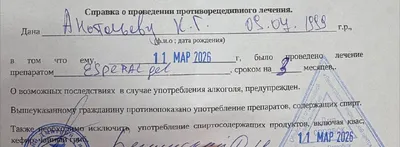 Справка о проведении противорецедивного лечения.
Дана Анатольеву К. Г. 09.07.1999 г.р.,
(ф.и.о ; дата рождения)
в том что ему, 11 МАР 2026 г, было проведено лечение
препаратом ESPERAL gel, сроком на 3 месяцев,.
О возможных последствиях в случае употребления алкоголя, предупрежден.
Вышеуказанному гражданину противопоказано употребление препаратов, содержащих спирт.
Также необходимо исключить употребление спиртосодержащих продуктов, включая квас,
кефир
11 МАР 2026